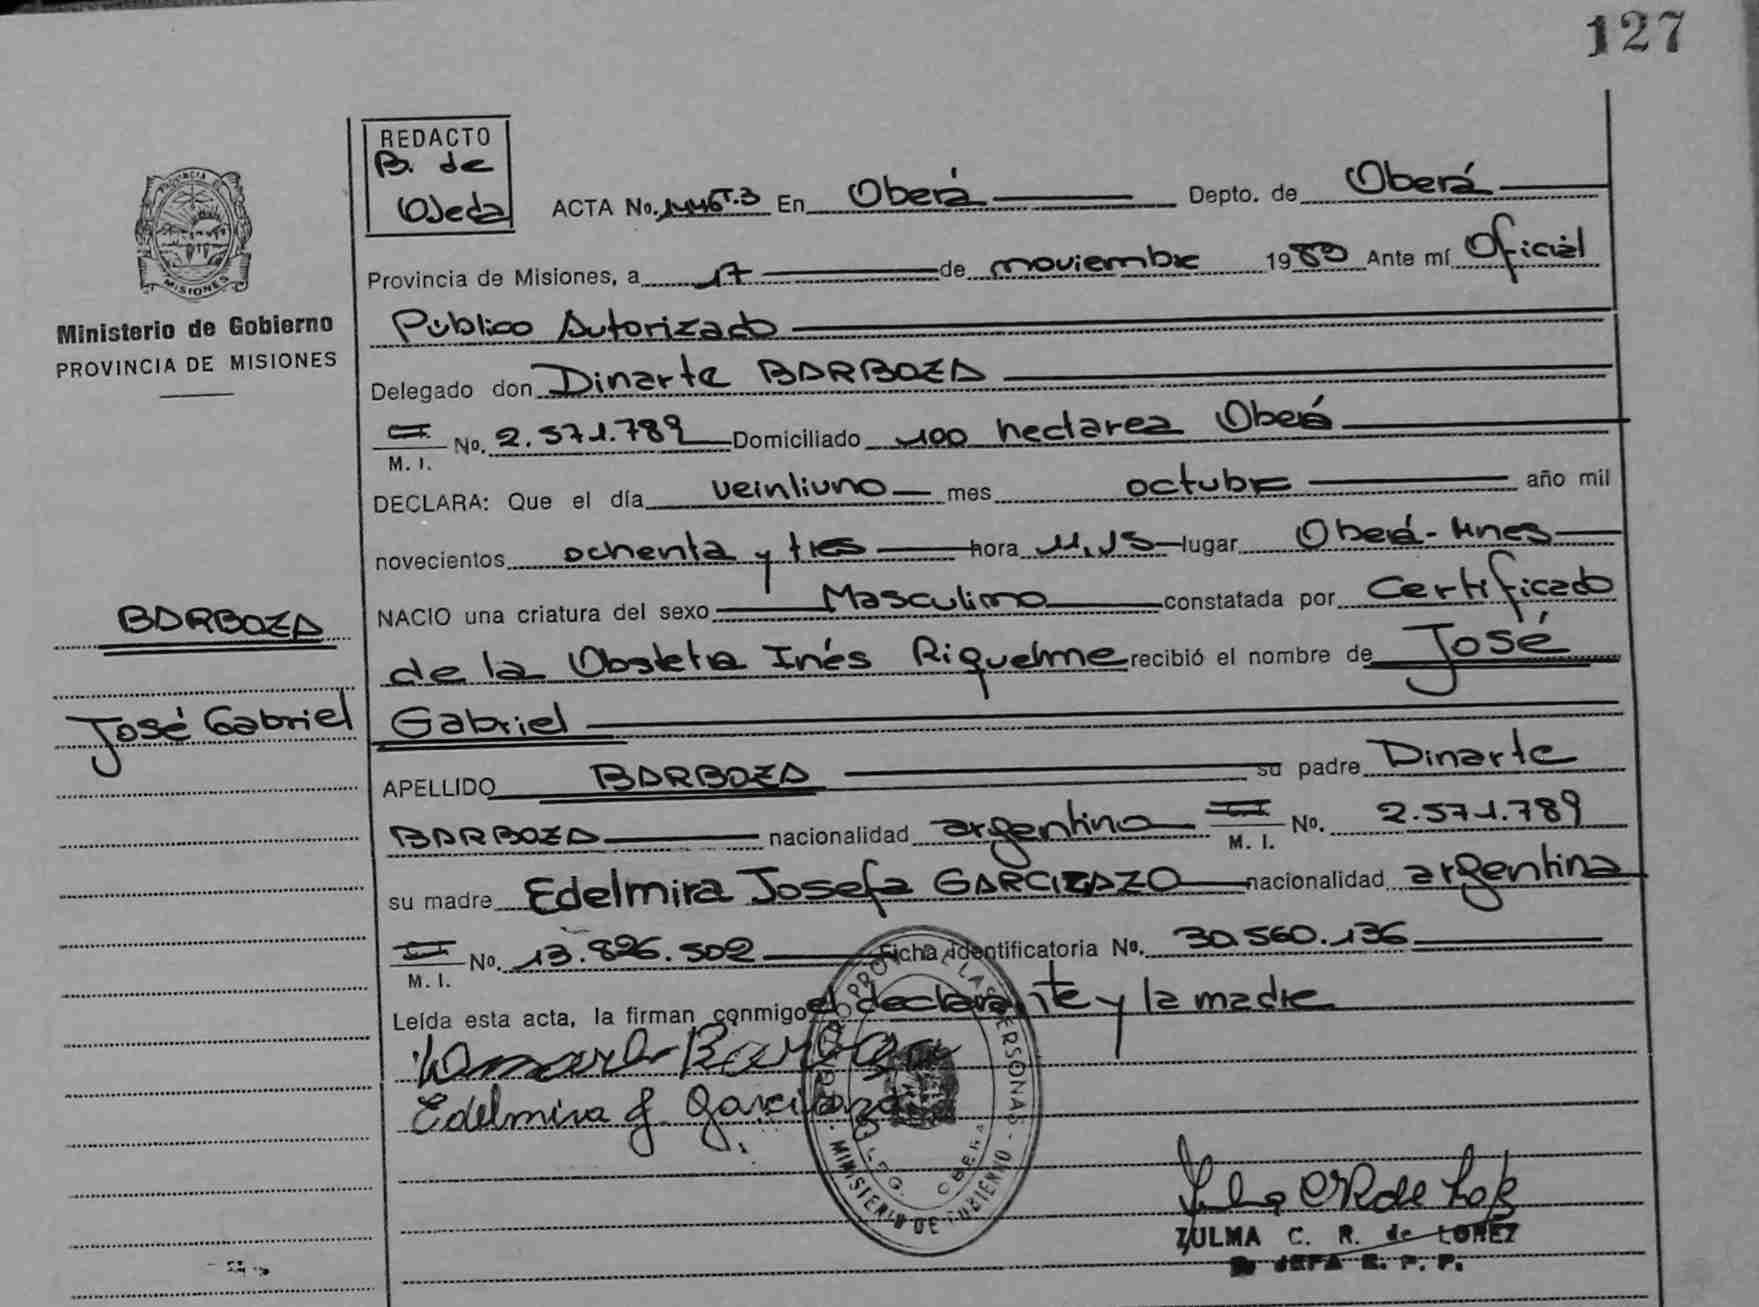 127
REDACTO
B. de
Ojeda
ACTA No. 1446 T.3 En Oberá Depto. de Oberá
Provincia de Misiones, a 17 de noviembre 1983 Ante mí Oficial
Público Autorizado
Delegado don Dinarte BARBOZA
M. I. No. 2.571.789 Domiciliado 100 hectarea Oberá
DECLARA: Que el día veintiuno mes octubre año mil
novecientos ochenta y tres hora 11,15 lugar Oberá - Mnes
NACIO una criatura del sexo Masculino constatada por Certificado
de la Obstetra Inés Riquelme recibió el nombre de José
Gabriel
APELLIDO BARBOZA su padre Dinarte
BARBOZA nacionalidad argentino M. I. No. 2.571.789
su madre Edelmira Josefa GARCIZAZO nacionalidad argentina
M. I. No. 13.826.502 Ficha identificatoria No. 30.560.136
Leída esta acta, la firman conmigo el declarante y la madre
Barboza
Edelmira J.
ZULMA C. R. de LOPEZ
JEFA R. P. P.
PROVINCIA DE
MISIONES
Ministerio de Gobierno
PROVINCIA DE MISIONES
BARBOZA
José Gabriel
DE LAS PERSONAS - MINISTERIO DE GOBIERNO -
OBERA